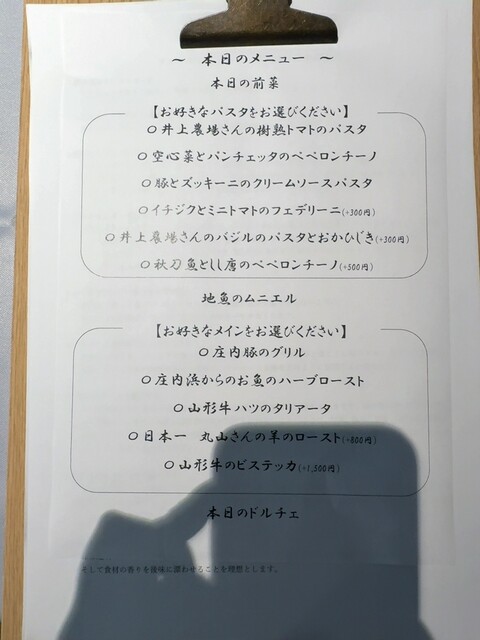 ～ 本日のメニュー ～
本日の前菜
【お好きなパスタをお選びください】
○井上農場さんの樹熟トマトのパスタ
○空心菜とパンチェッタのペペロンチーノ
○豚とズッキーニのクリームソースパスタ
○イチジクとミニトマトのフェデリーニ(+300円)
○井上農場さんのバジルのパスタとおかひじき(+300円)
○秋刀魚としし唐のペペロンチーノ(+500円)
地魚のムニエル
【お好きなメインをお選びください】
○庄内豚のグリル
○庄内浜からのお魚のハーブロースト
○山形牛ハツのタリアータ
○日本一 丸山さんの羊のロースト(+800円)
○山形牛のビステッカ(+1,500円)
本日のドルチェ
そして食材の香りを後味に漂わせることを理想とします。